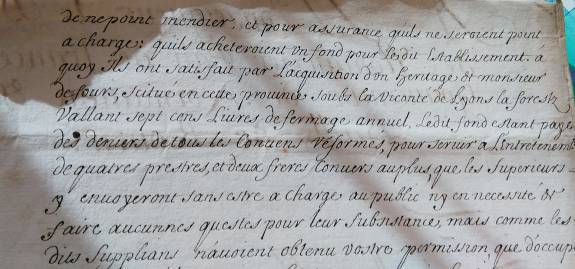 de ne point mendier, et pour assurance quils ne seroient point
a charge; quils acheteroient un fond pour ledit Establissement. a
quoy ils ont satisfait par L'acquisition d'un heritage de monsieur
de fours, scitue en cette province soubs la viconté de Lyons la forest
Vallant sept cens Livres de fermage annuel, Ledit fond estant payé
des deniers de tous les Convens réformés, pour servir a L'entretenement
de quatres prestres, et deux freres Convers au plus, que les Superieurs
y envoyeront sans estre a charge au public ny en necessité de
faire aucunnes questes pour leur Subsistance, mais comme les
dits Supplians n'avoient obtenu vostre permission que d'occup